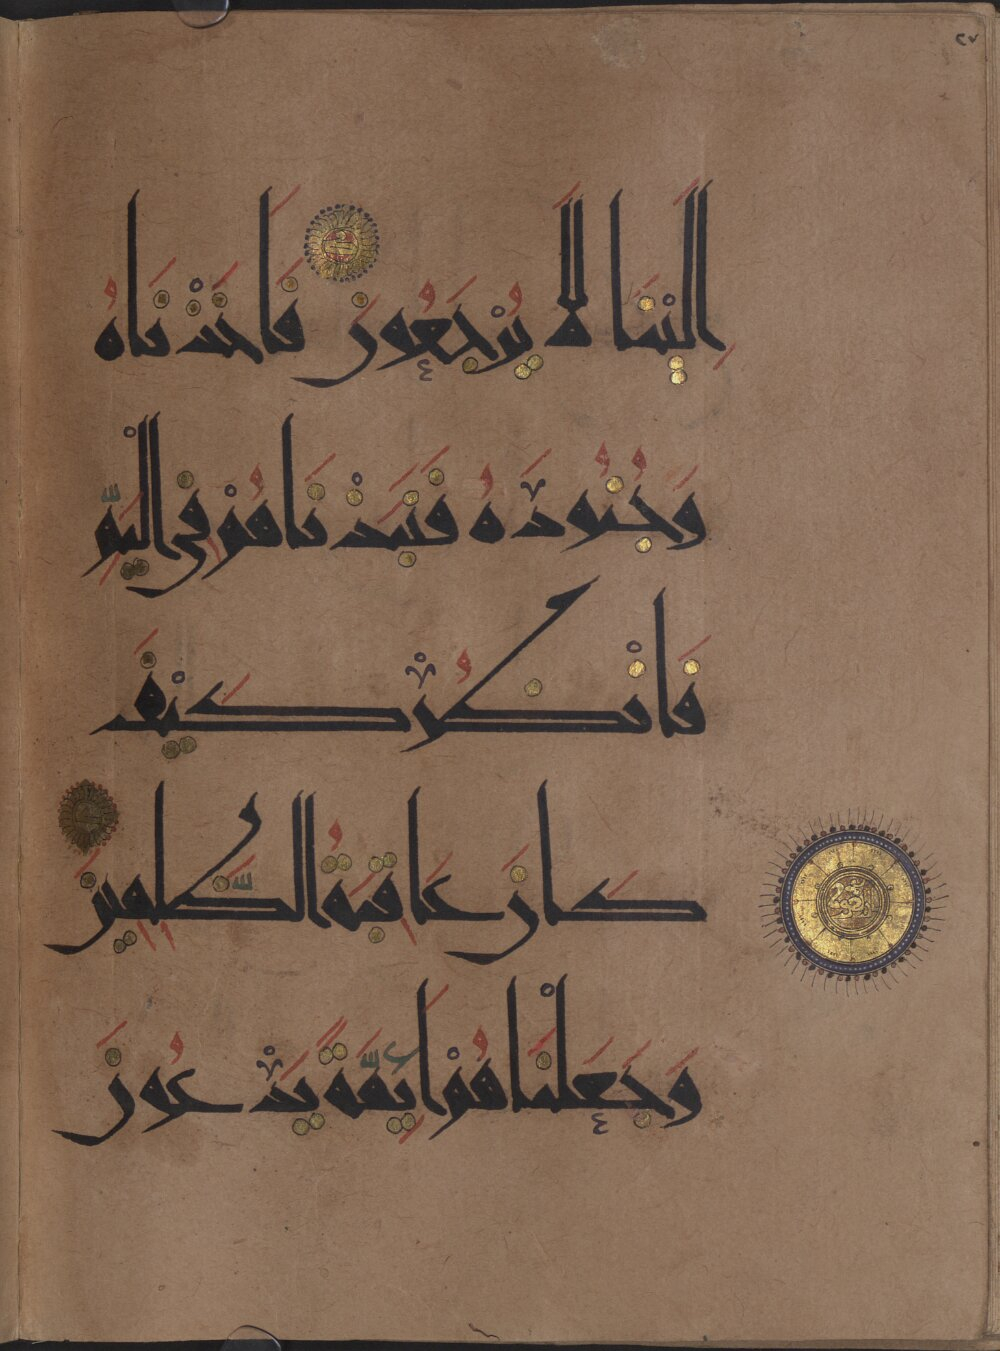 ٢٧
إِلَيْنَا لَا يُرْجَعُونَ فَأَخَذْنَاهُ
وَجُنُودَهُ فَنَبَذْنَاهُمْ فِي الْيَمِّ
فَانْظُرْ كَيْفَ
كَانَ عَاقِبَةُ الظَّالِمِينَ
وَجَعَلْنَاهُمْ أَئِمَّةً يَدْعُونَ